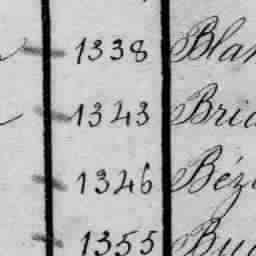 1338 Blan
1343 Brid
1346 Béz
1355 Bu